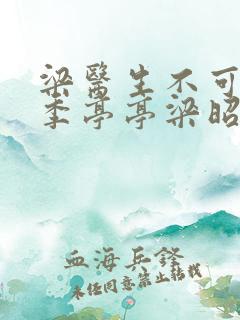 梁醫生不可
季亭亭梁昭
血海兵鋒
未經同意禁止轉載